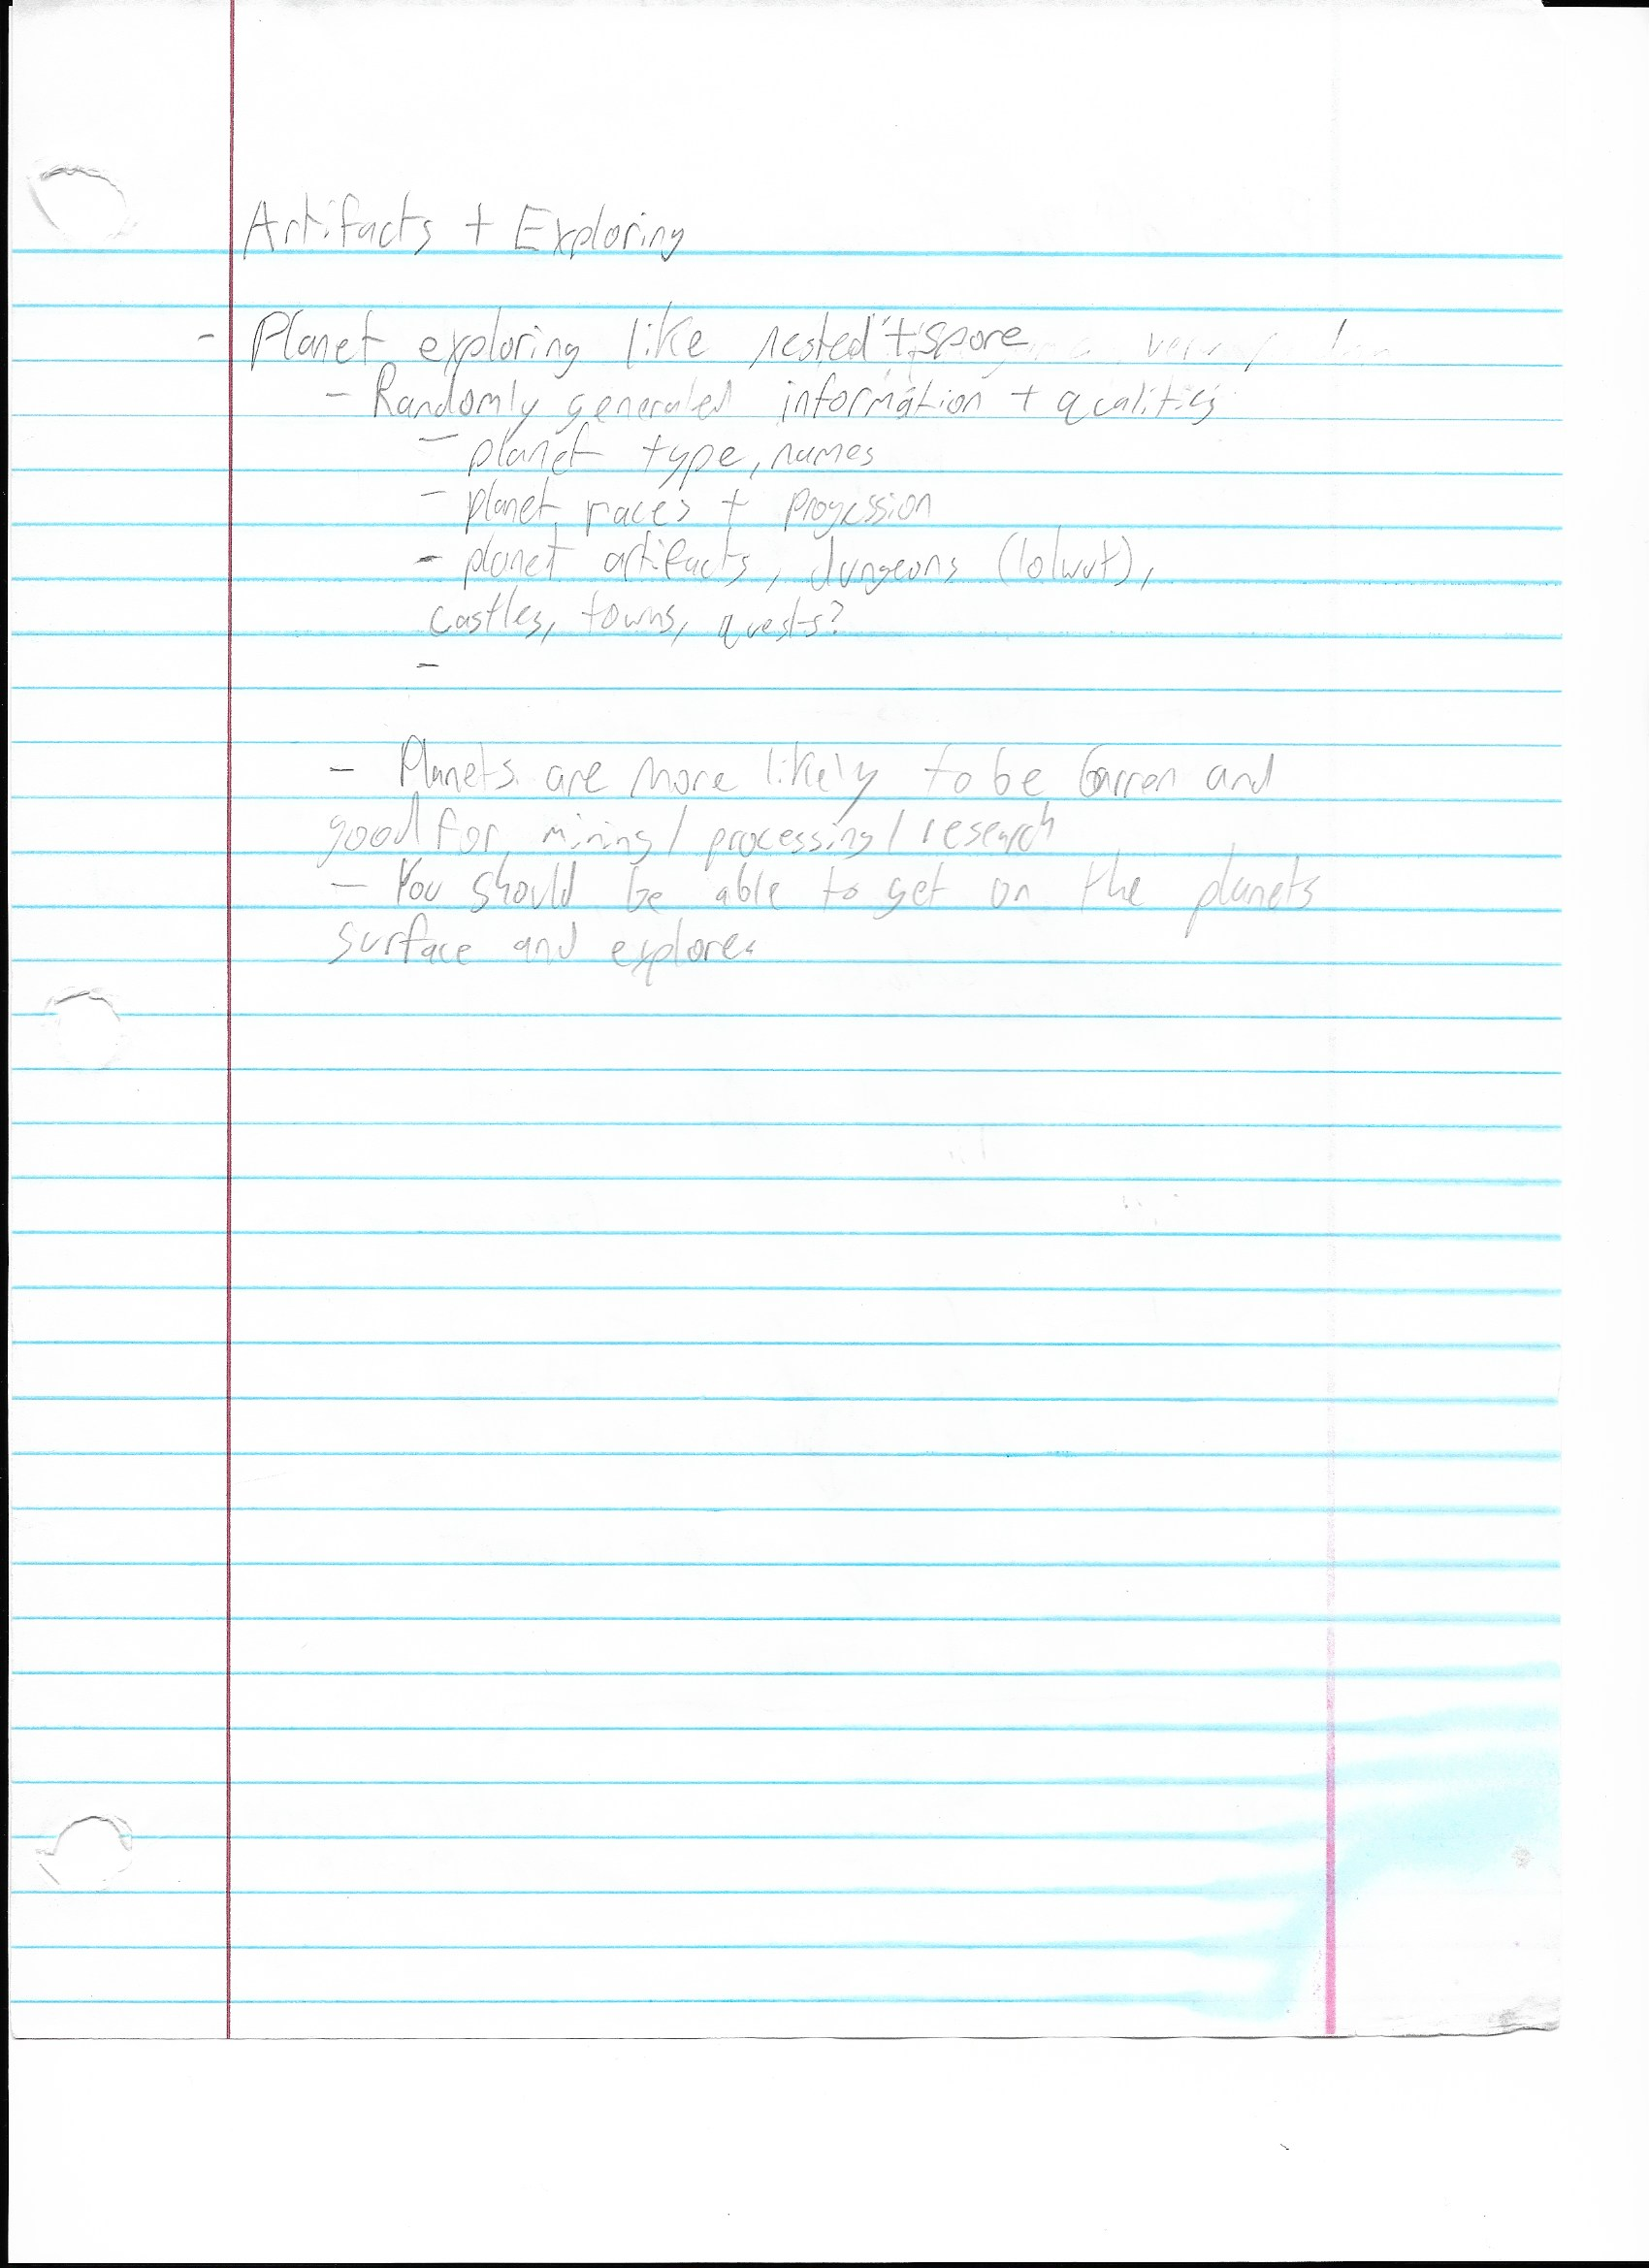 Artifacts + Exploring
- Planet exploring like nested + spore
- Randomly generated information + qualities
- planet type, names
- planet races + progession
- planet artifacts, dungeons (lolwut),
castles, towns, quests?
-
- Planets are more likely to be barren and
good for mining / processing / research
- You should be able to get on the planets
surface and explore.